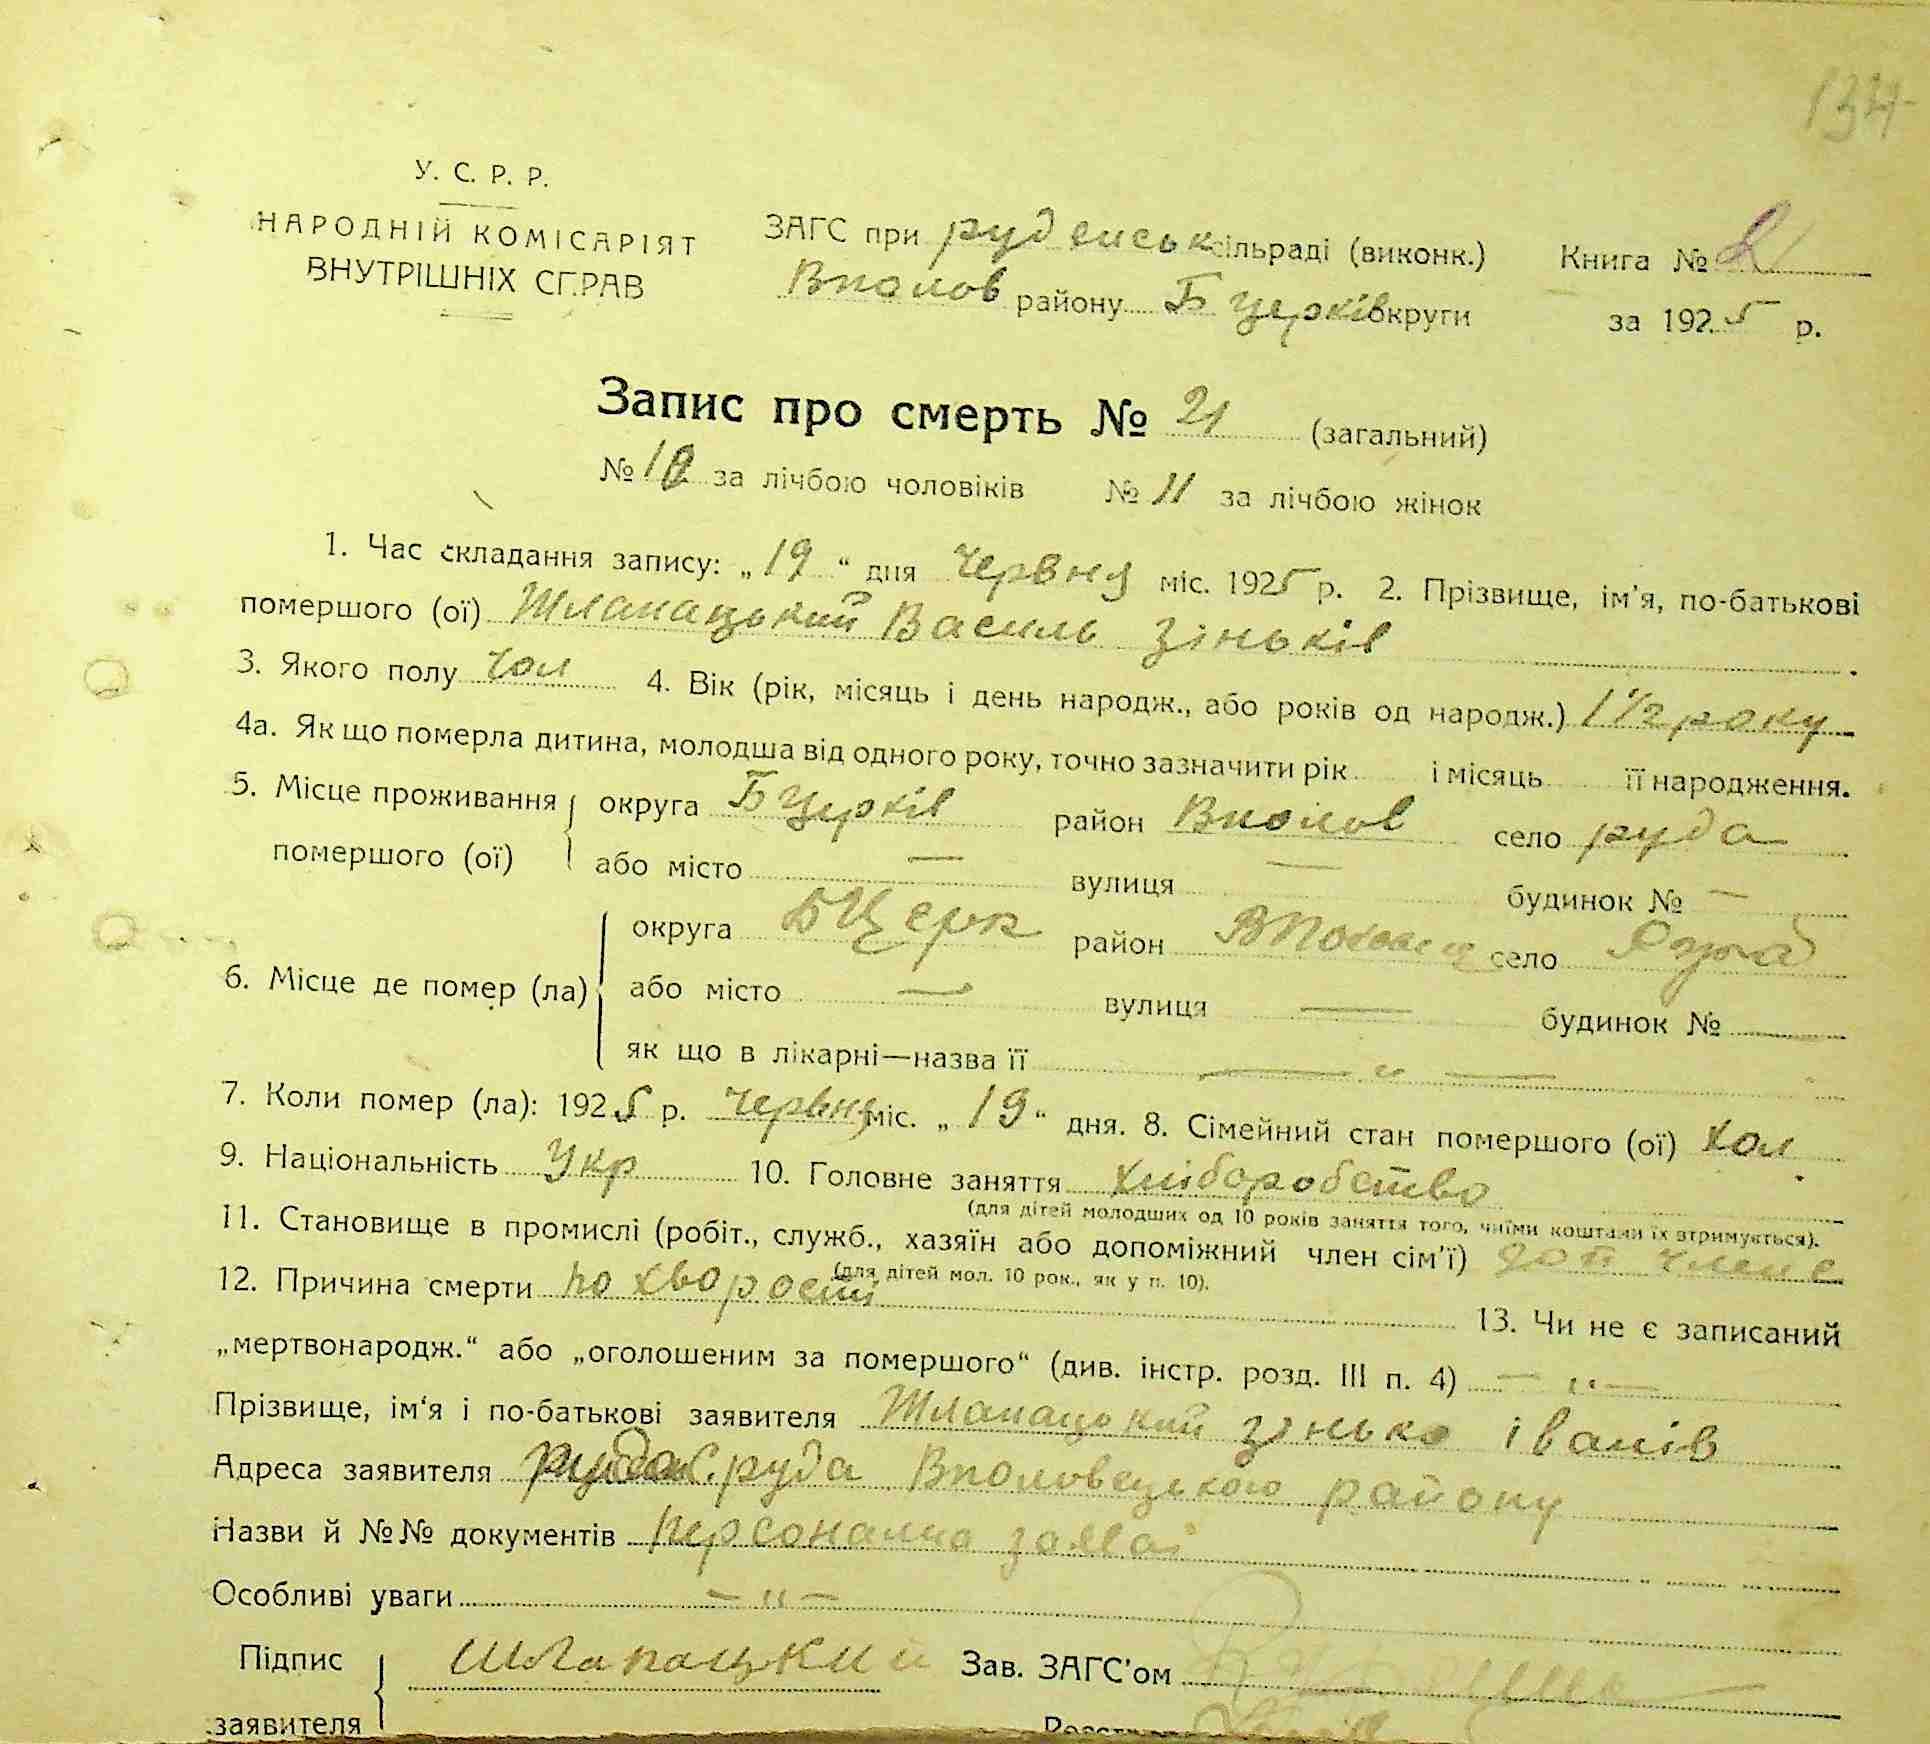 134
У. С. Р. Р.
НАРОДНІЙ КОМІСАРІЯТ
ВНУТРІШНІХ СПРАВ
ЗАГС при руденськ сільраді (виконк.)
Вполов району Б Церків округи
Книга № 2
за 1925 р.
Запис про смерть № 21 (загальний)
№ 10 за лічбою чоловіків № 11 за лічбою жінок
1. Час складання запису: „19“ дня Червня міс. 1925 р. 2. Прізвище, ім'я, по-батькові
помершого (ої) Шлапацький Василь Зіньків
3. Якого полу Чол 4. Вік (рік, місяць і день народж., або років од народж.) 1 1/2 року
4а. Як що померла дитина, молодша від одного року, точно зазначити рік і місяць її народження.
5. Місце проживання помершого (ої) округа Б Церків район Вполов село руда
або місто — вулиця — будинок № —
6. Місце де помер (ла) округа БЦерк район ВПолов село Руда
або місто — вулиця — будинок №
як що в лікарні—назва її — „ —
7. Коли помер (ла): 1925 р. Червня міс. „19“ дня. 8. Сімейний стан помершого (ої) хол
9. Національність Укр 10. Головне заняття хліборобство
(для дітей молодших од 10 років заняття того, чиїми коштами їх втримується).
11. Становище в промислі (робіт., служб., хазяїн або допоміжний член сім'ї) доп член с
(для дітей мол. 10 рок., як у п. 10).
12. Причина смерти по хворости 13. Чи не є записаний
„мертвонародж.“ або „оголошеним за помершого“ (див. інстр. розд. III п. 4) — „ —
Прізвище, ім'я і по-батькові заявителя Шлапацький Зінько Іванів
Адреса заявителя с. руда Вполовецького району
Назви й №№ документів персонална заява
Особливі уваги — „ —
Підпис заявителя Шлапацкий Зав. ЗАГС'ом